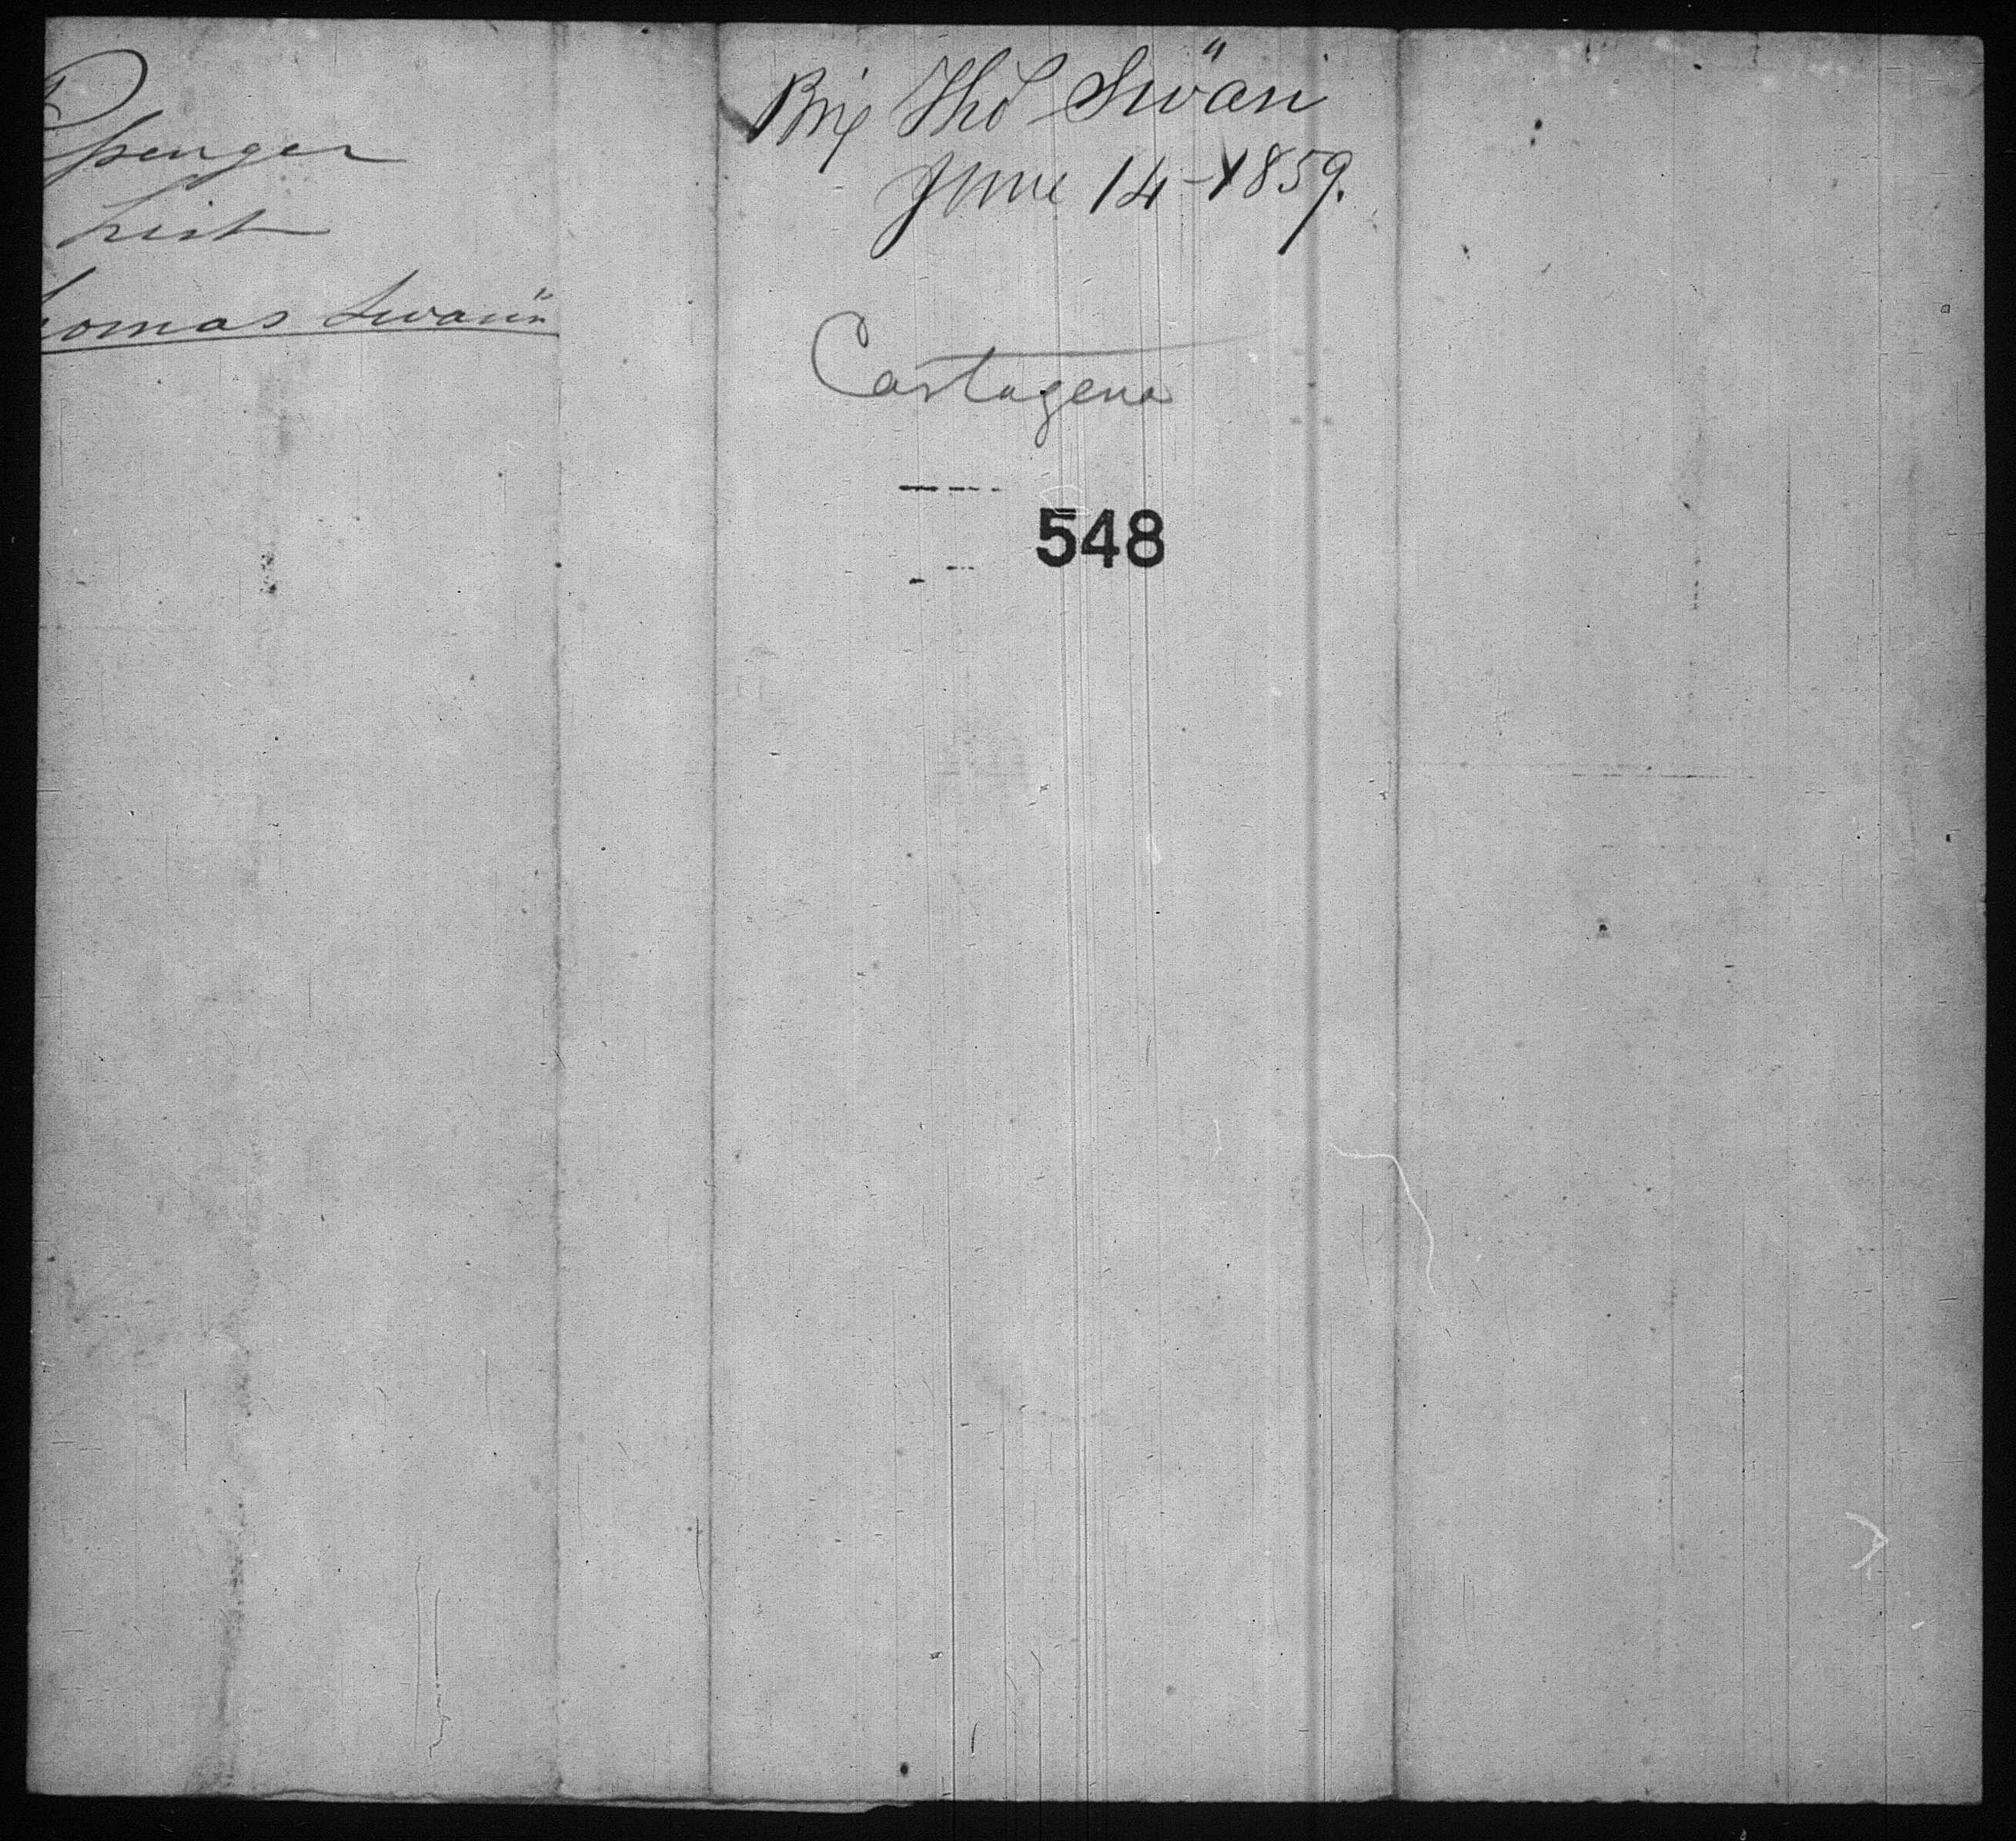 Pssenger
List
homas Swann"
Brig Tho Swan"
June 14 - 1859.
Cartagena
548